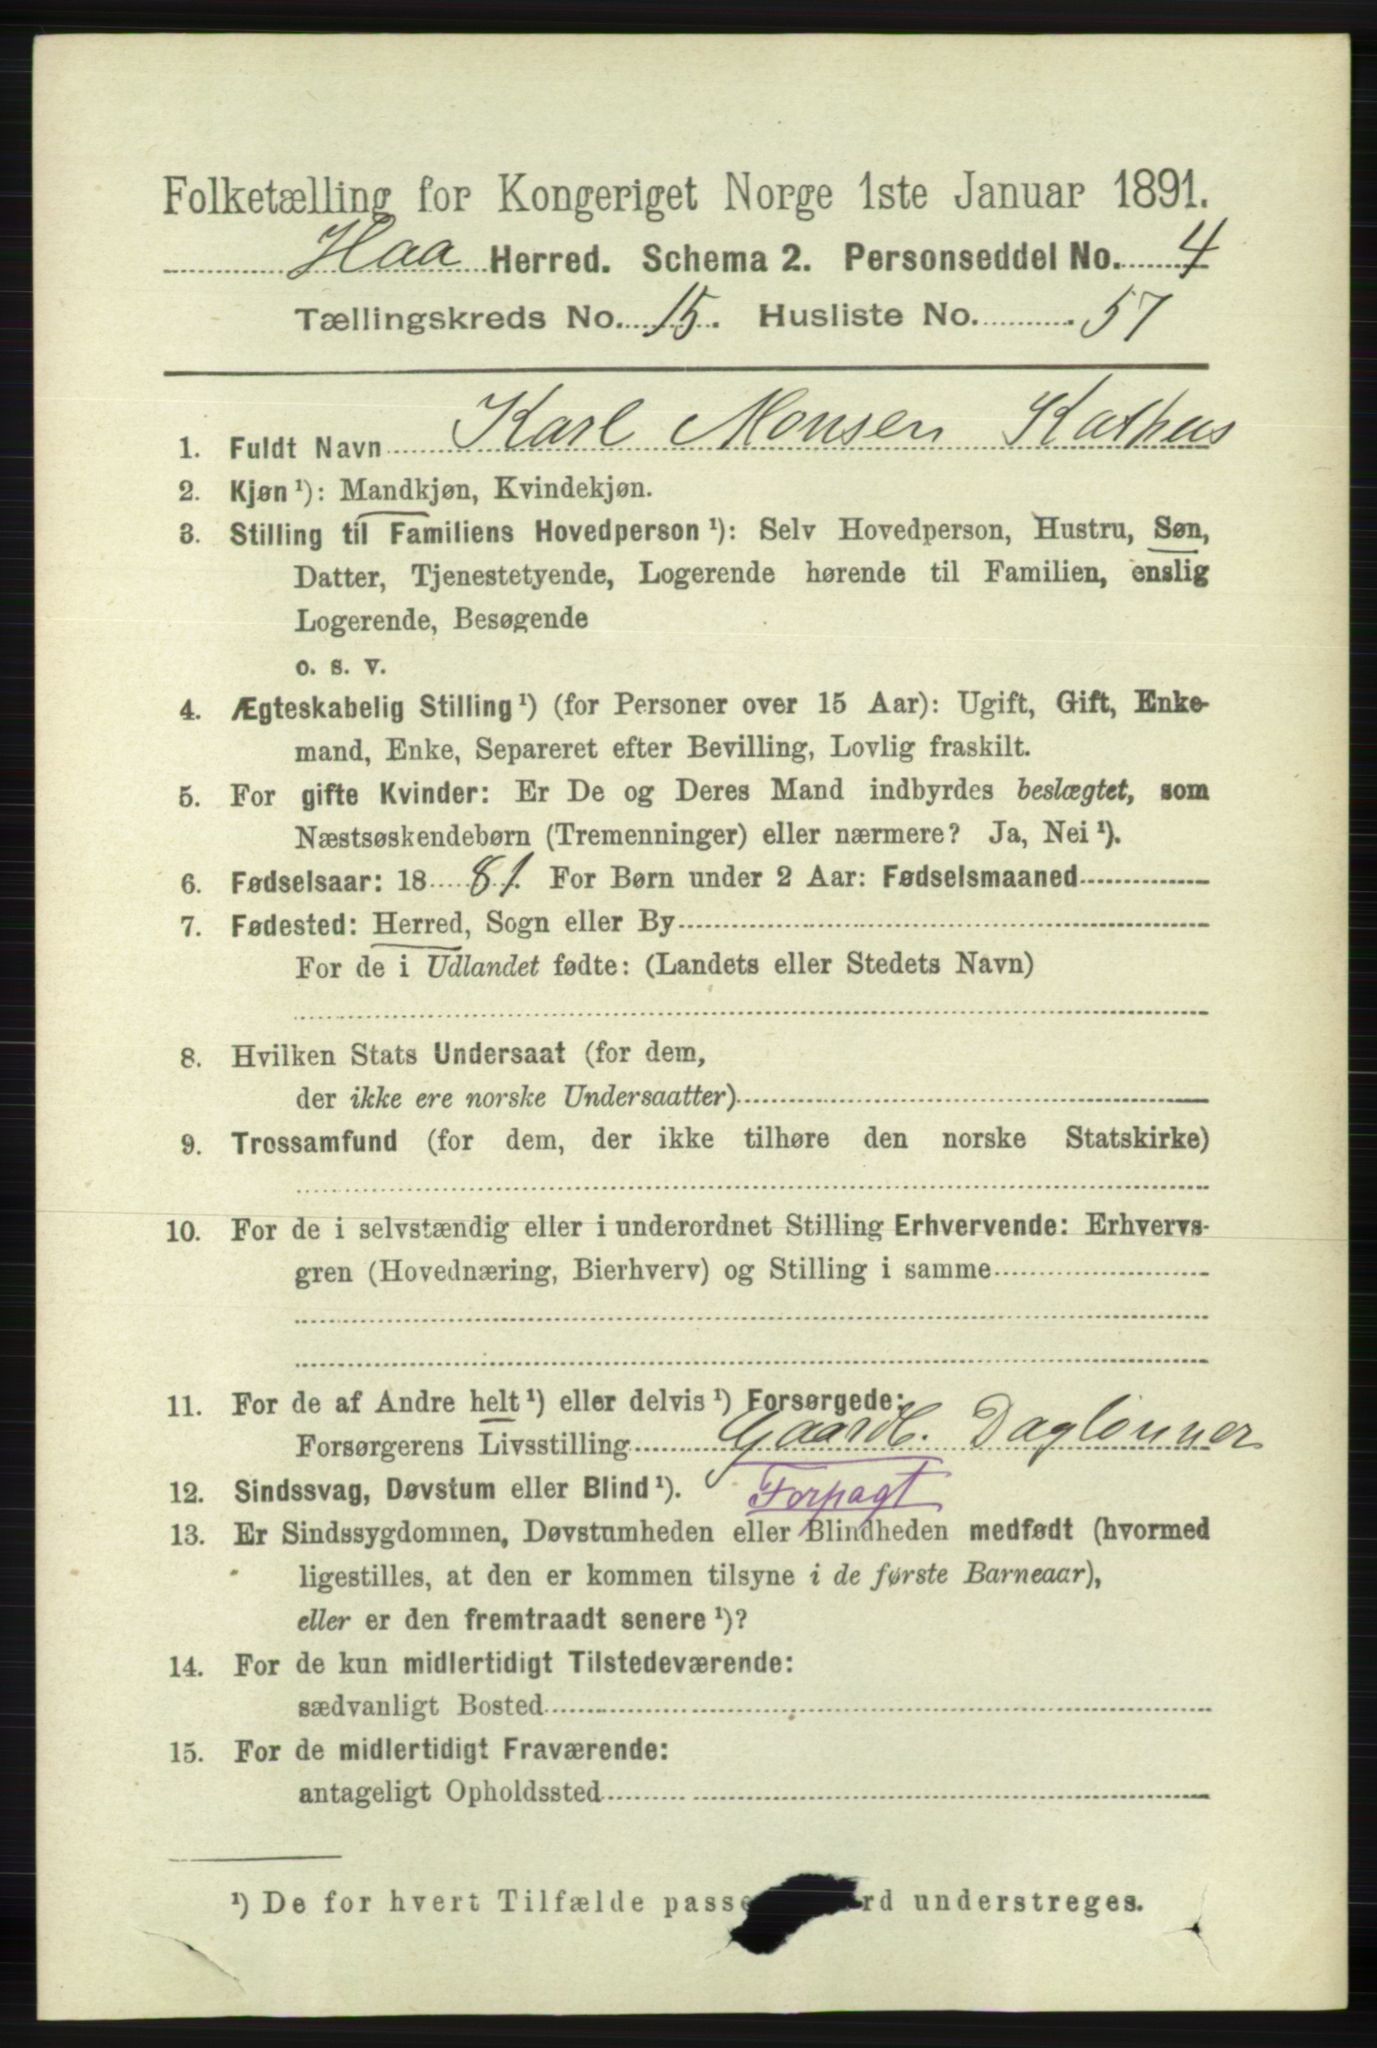 Folketælling for Kongeriget Norge 1ste Januar 1891.
Haa Herred. Schema 2. Personseddel No. 4
Tællingskreds No. 15. Husliste No. 57
1. Fuldt Navn Karl Monsen Kathus
2. Kjøn ¹): Mandkjøn, Kvindekjøn.
3. Stilling til Familiens Hovedperson ¹): Selv Hovedperson, Hustru, Søn,
Datter, Tjenestetyende, Logerende hørende til Familien, enslig
Logerende, Besøgende
o. s. v.
4. Ægteskabelig Stilling ¹) (for Personer over 15 Aar): Ugift, Gift, Enke-
mand, Enke, Separeret efter Bevilling, Lovlig fraskilt.
5. For gifte Kvinder: Er De og Deres Mand indbyrdes beslægtet, som
Næstsøskendebørn (Tremenninger) eller nærmere? Ja, Nei ¹).
6. Fødselsaar: 1881. For Børn under 2 Aar: Fødselsmaaned
7. Fødested: Herred, Sogn eller By
For de i Udlandet fødte: (Landets eller Stedets Navn)
8. Hvilken Stats Undersaat (for dem,
der ikke ere norske Undersaatter)
9. Trossamfund (for dem, der ikke tilhøre den norske Statskirke)
10. For de i selvstændig eller i underordnet Stilling Erhvervende: Erhvervs-
gren (Hovednæring, Bierhverv) og Stilling i samme
11. For de af Andre helt ¹) eller delvis ¹) Forsørgede:
Forsørgerens Livsstilling Gaardb. Daglønner
12. Sindssvag, Døvstum eller Blind ¹). Forpagt
13. Er Sindssygdommen, Døvstumheden eller Blindheden medfødt (hvormed
ligestilles, at den er kommen tilsyne i de første Barneaar),
eller er den fremtraadt senere ¹)?
14. For de kun midlertidigt Tilstedeværende:
sædvanligt Bosted
15. For de midlertidigt Fraværende:
antageligt Opholdssted
¹) De for hvert Tilfælde passe rd understreges.